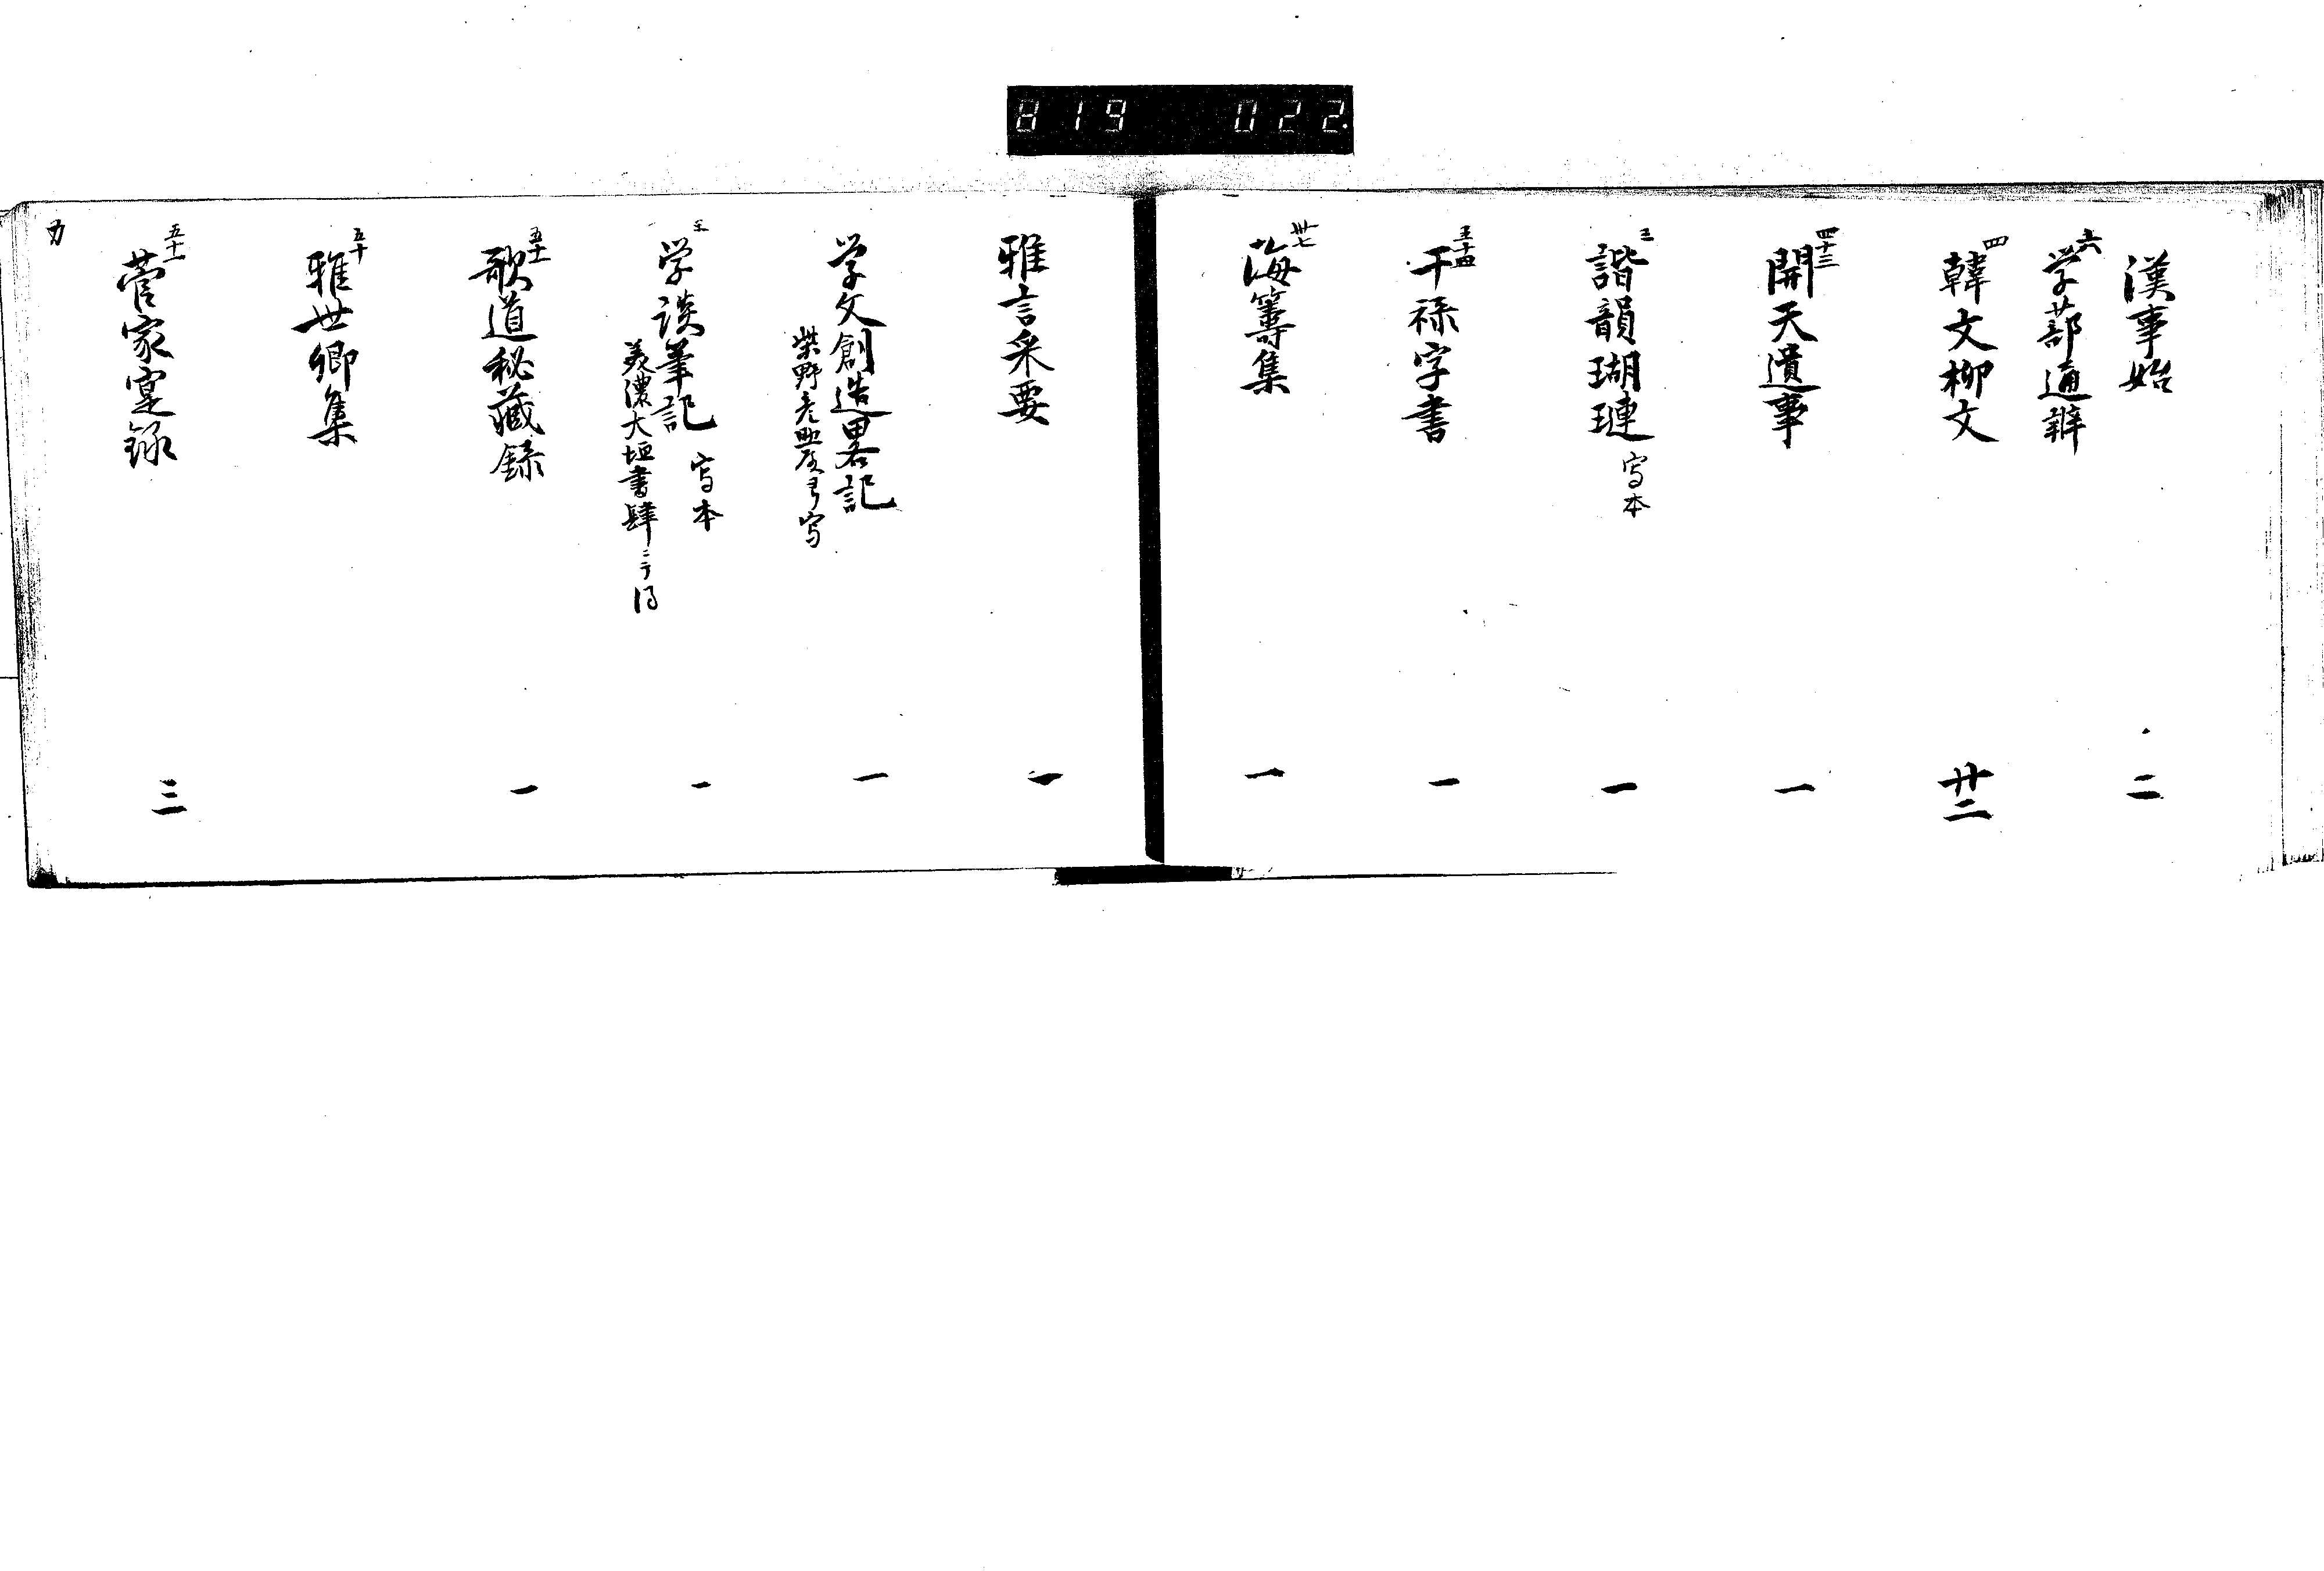 819 022
漢事始 二
六 学蔀通辨
四 韓文柳文 廿二
四十三 開天遺事 一
三 諧韻瑚璉 写本 一
五十四 干禄字書 一
卅七 海籌集 一
雅言釆要 一
学文創造畧記 一
柴野 写
学談筆記 写本 一
美濃大垣書肆ニテ得
五十一 歌道秘蔵録 一
五十 雅世卿集
五十一 菅家寔録 三
カ